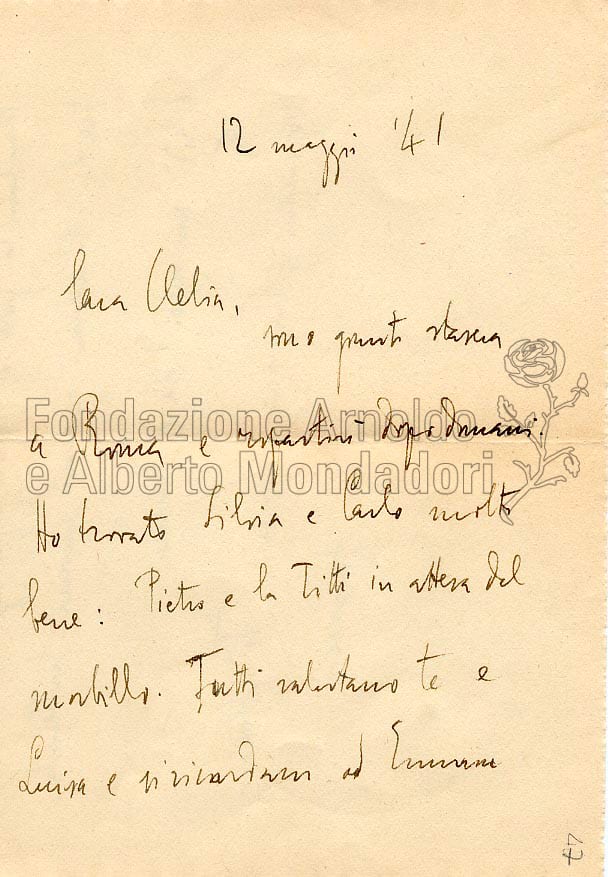 12 maggio '41
Cara Clelia,
sono giunto stasera
Fondazione Arnoldo
e Alberto Mondadori
a Roma e ripartirò dopodomani.
Ho trovato Silvia e Carlo molto
bene: Pietro e la Titti in attesa del
morbillo. Tutti salutano te e
Luisa e si ricordano ad
47